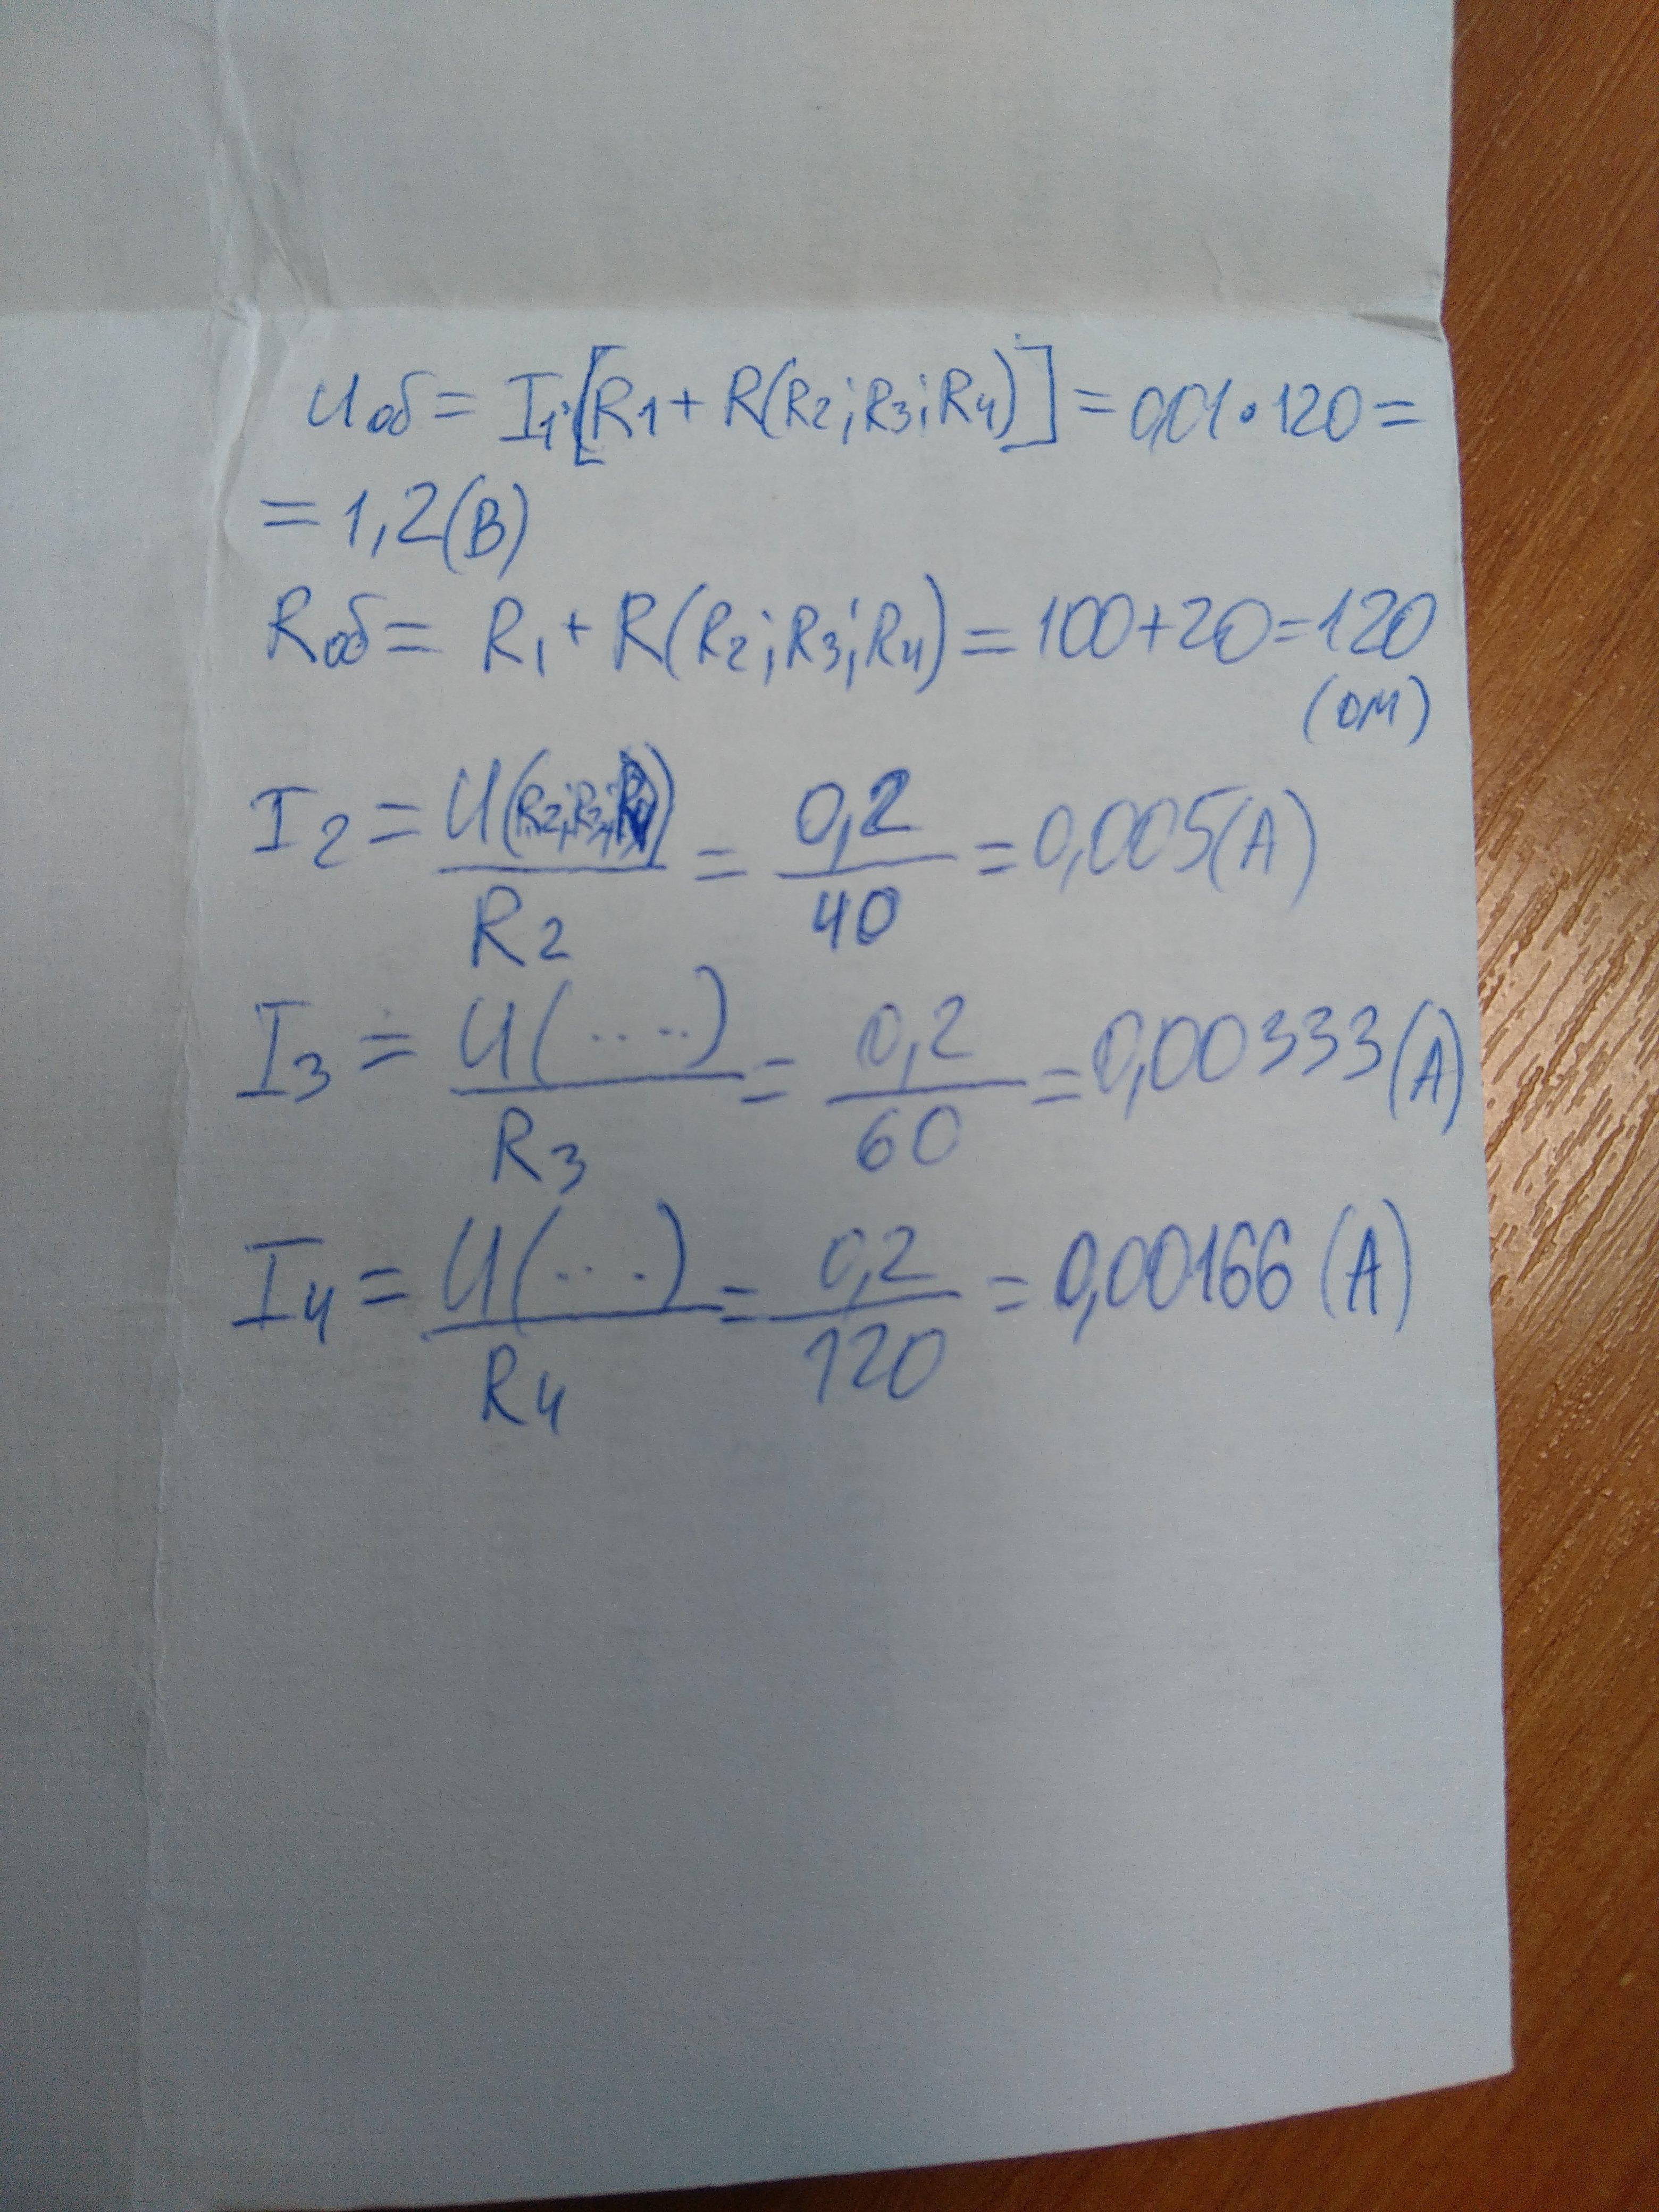 Uоб = I1·[R1 + R(R2;R3;R4)] = 0,01·120 =
= 1,2(В)
Rоб = R1 + R(R2;R3;R4) = 100+20=120
(ом)
I2 = U(R2;R3;R4) / R2 = 0,2 / 40 = 0,005(А)
I3 = U(....) / R3 = 0,2 / 60 = 0,00333(А)
I4 = U(....) / R4 = 0,2 / 120 = 0,00166 (А)